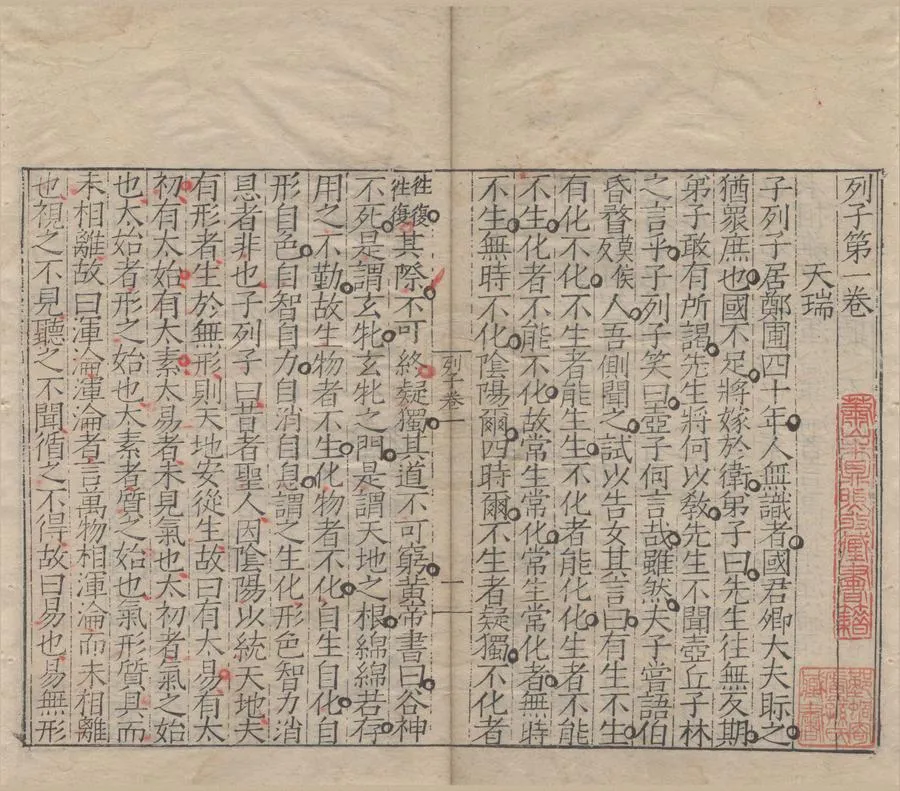 列子第一卷
天瑞
子列子居鄭圃四十年人無識者國君卿大夫眎之
猶眾庶也國不足將嫁於衛弟子曰先生往無反期
弟子敢有所謁先生將何以敎先生不聞壺丘子林
之言乎子列子笑曰壺子何言哉雖然夫子嘗語伯
昏瞀莫侯反人吾側聞之試以告女其言曰有生不生
有化不化不生者能生生不化者能化化生者不能
不生化者不能不化故常生常化常生常化者無時
不生無時不化陰陽爾四時爾不生者疑獨不化者
往復往復其際不可終疑獨其道不可窮黃帝書曰谷神
不死是謂玄牝玄牝之門是謂天地之根綿綿若存
用之不勤故生物者不生化物者不化自生自化自
形自色自智自力自消自息謂之生化形色智力消
息者非也子列子曰昔者聖人因陰陽以統天地夫
有形者生於無形則天地安從生故曰有太易有太
初有太始有太素太易者未見氣也太初者氣之始
也太始者形之始也太素者質之始也氣形質具而
未相離故曰渾淪渾淪者言萬物相渾淪而未相離
也視之不見聽之不聞循之不得故曰易也易無形
列子卷